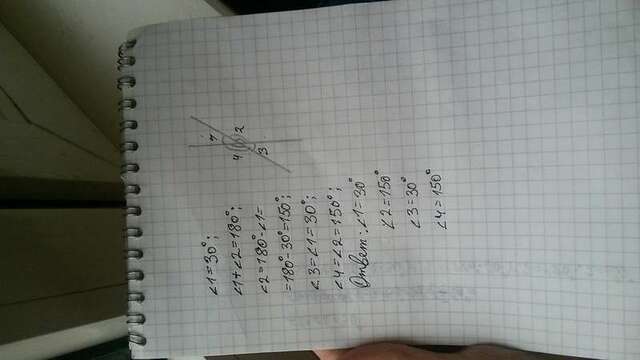 ∠1=30°;
∠1+∠2=180°;
∠2=180°-∠1=
=180°-30°=150°;
∠3=∠1=30°;
∠4=∠2=150°;
Ответ: ∠1=30°
∠2=150°
∠3=30°
∠4=150°
1
4 2
3